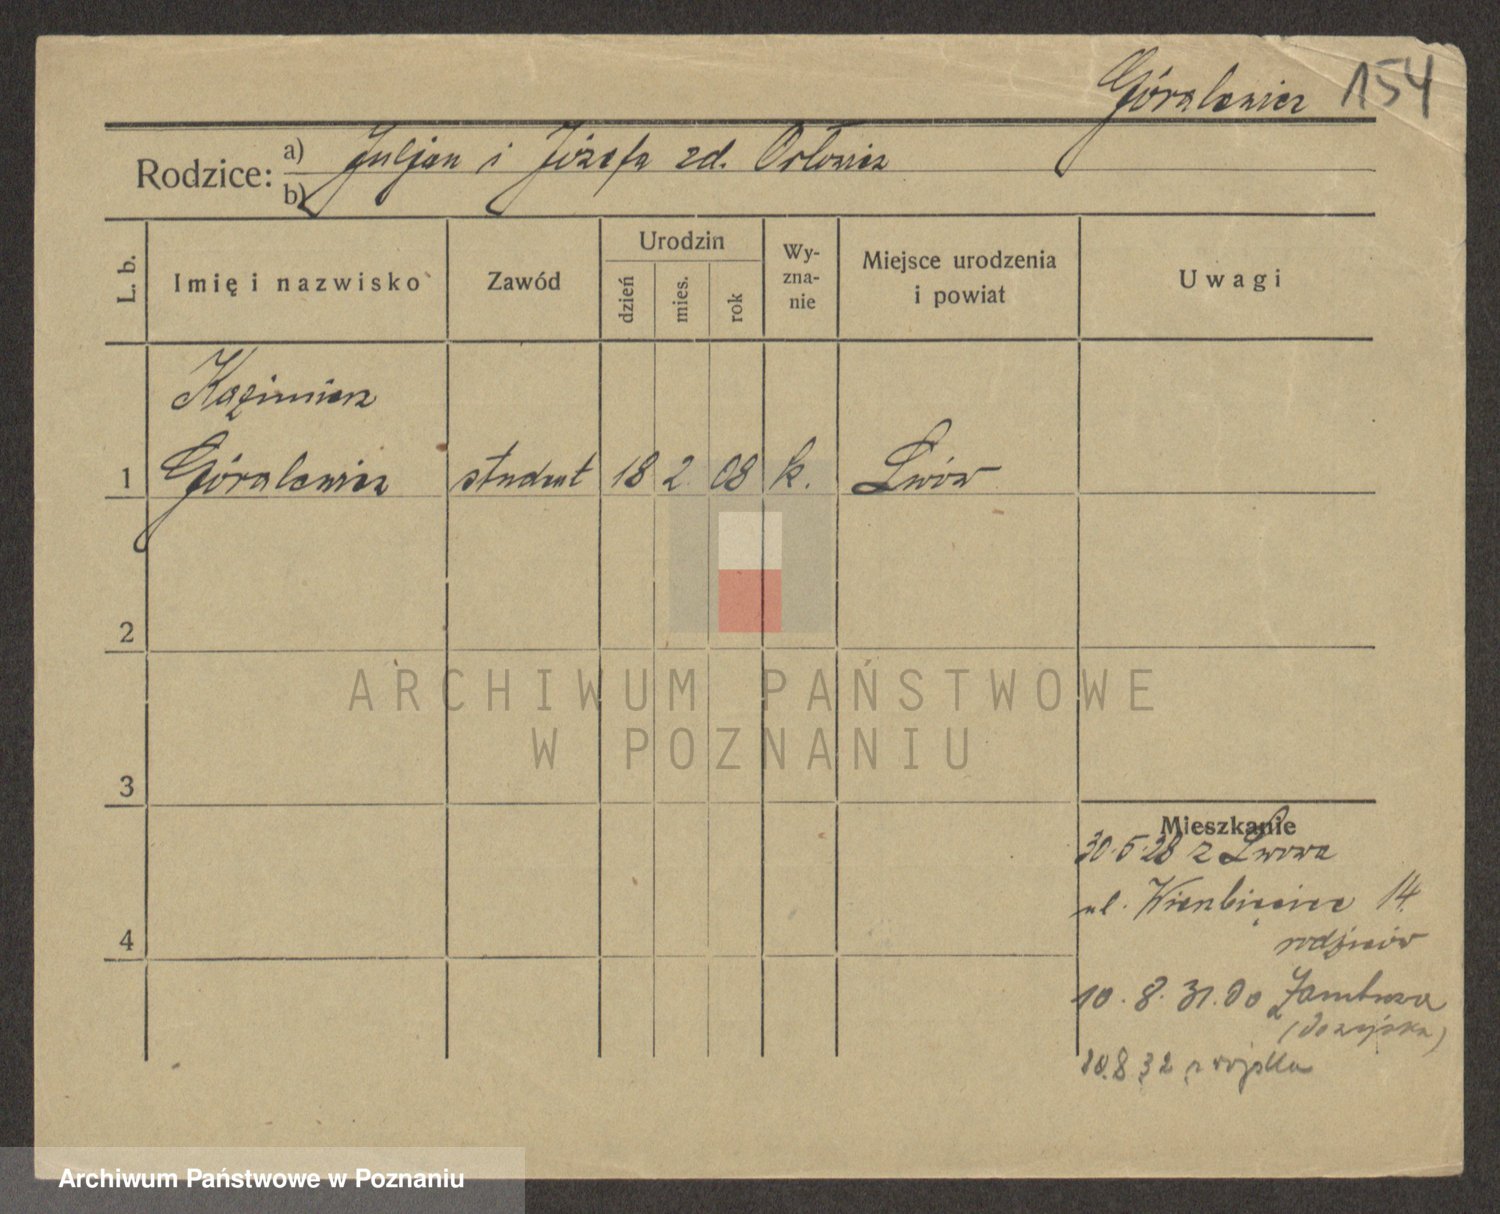 Góralewicz 154
Rodzice: a) Juljan i Józefa zd. Orłowicz
b)
L. b.
Imię i nazwisko
Zawód
Urodzin
dzień
mies.
rok
Wy-
zna-
nie
Miejsce urodzenia
i powiat
Uwagi
Kazimierz
1 Góralewicz student 18 2 08 k. Lwów
2
ARCHIWUM PAŃSTWOWE
W POZNANIU
3
Mieszkanie
30.5.28 z Lwowa
ul. Wierzbięcice 14.
rodziców
4
10.8.31. do
(do wojska)
10.8 32 z wojska
Archiwum Państwowe w Poznaniu